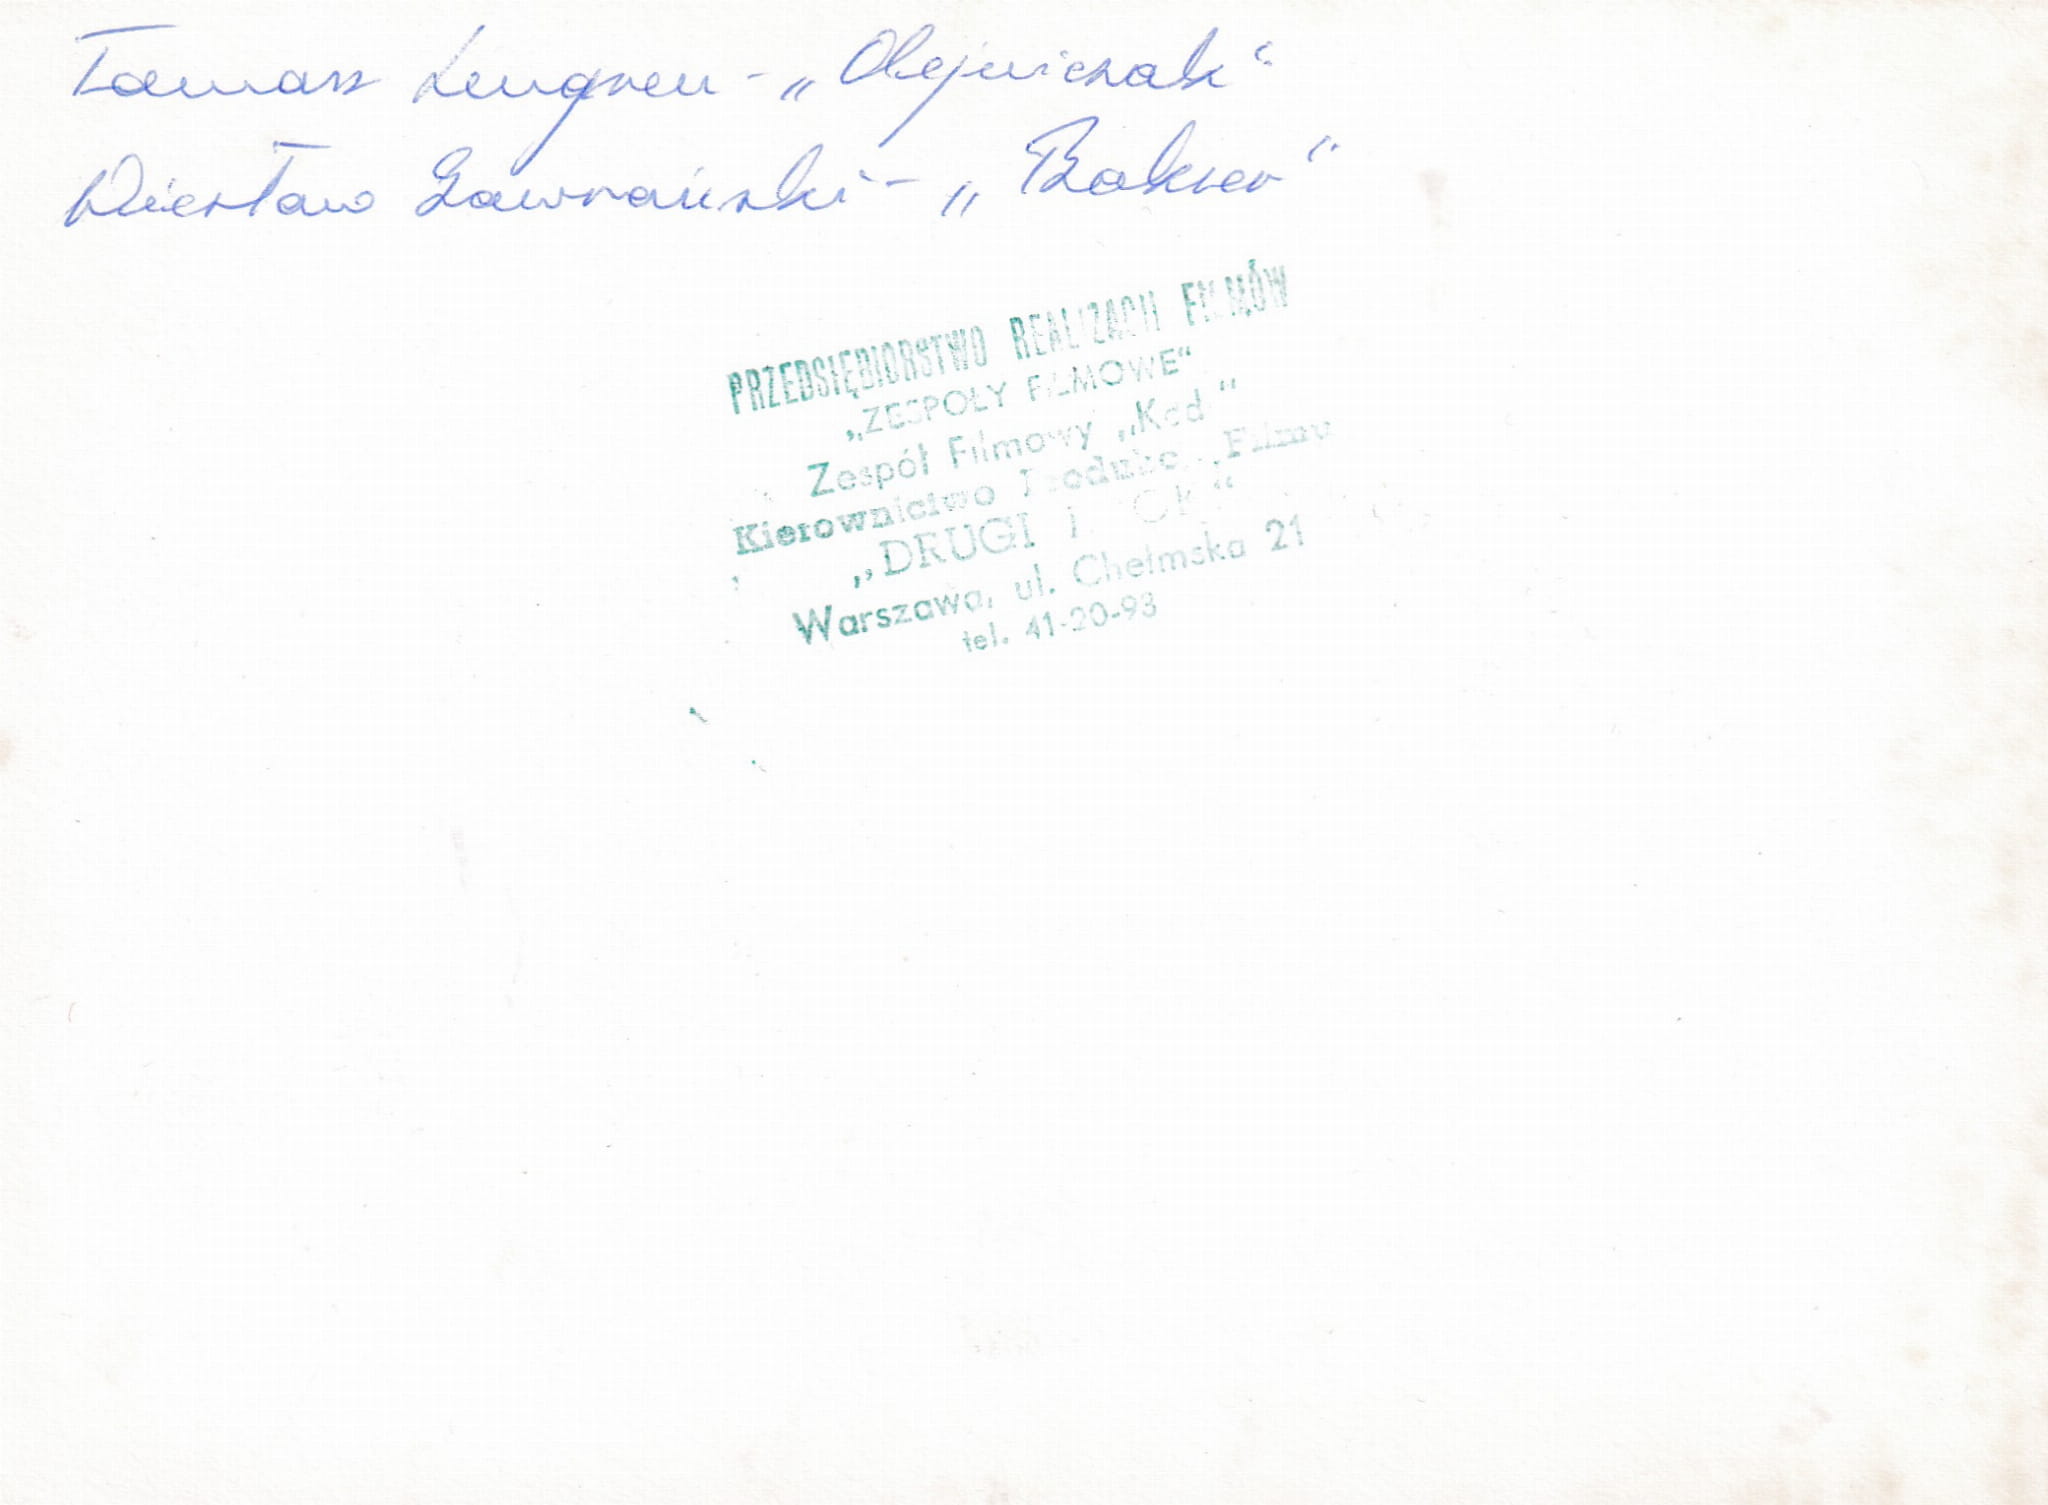 Tomasz Lengren - „Olejniczak“
Wiesław Zawrański - „Bokser“
PRZEDSIĘBIORSTWO REALIZACJI FILMÓW
„ZESPOŁY FILMOWE“
Zespół Filmowy „Kad“
Kierownictwo Filmu
„DRUGI
Warszawa, ul. Chełmska 21
tel. 41-20-93